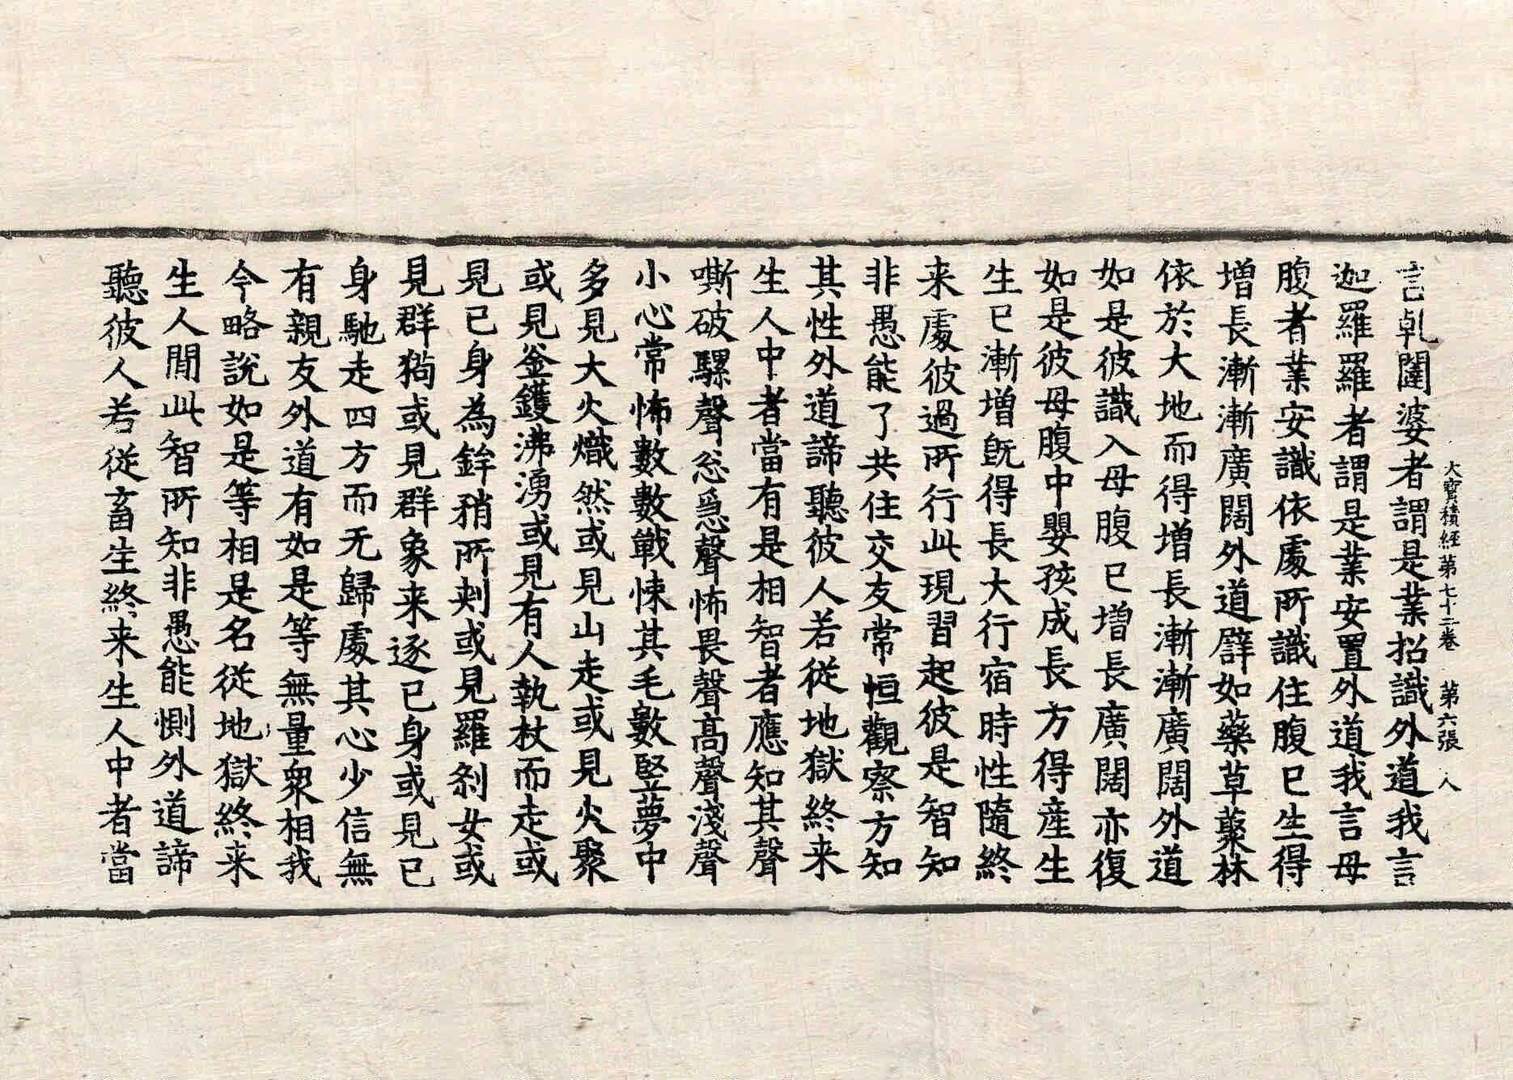 大寳積経苐七十三卷　苐六張　入
言乹闥婆者謂是業招識外道我言
迦羅羅者謂是業安置外道我言母
腹者業安識依處所識住腹已生得
增長漸漸廣闊外道譬如藥草藂林
依於大地而得増長漸漸廣闊外道
如是彼識入母腹已增長廣闊亦復
如是彼母腹中嬰孩成長方得産生
生已漸増旣得長大行宿時性隨終
来處彼過所行此現習起彼是智知
非愚能了共住交友常恒觀察方知
其性外道諦聽彼人若從地獄終来
生人中者當有是相智者應知其聲
嘶破騾聲忩急聲怖畏聲高聲淺聲
小心常怖數數戰悚其毛數竪夢中
多見大火熾然或見山走或見火聚
或見釜鑊沸湧或見有人執杖而走或
見己身為鉾矟所刺或見羅剎女或
見群狗或見群象来逐己身或見己
身馳走四方而无歸處其心少信無
有親友外道有如是等無量衆相我
今略說如是等相是名從地獄終来
生人間此智所知非愚能惻外道諦
聽彼人若從畜生終来生人中者當